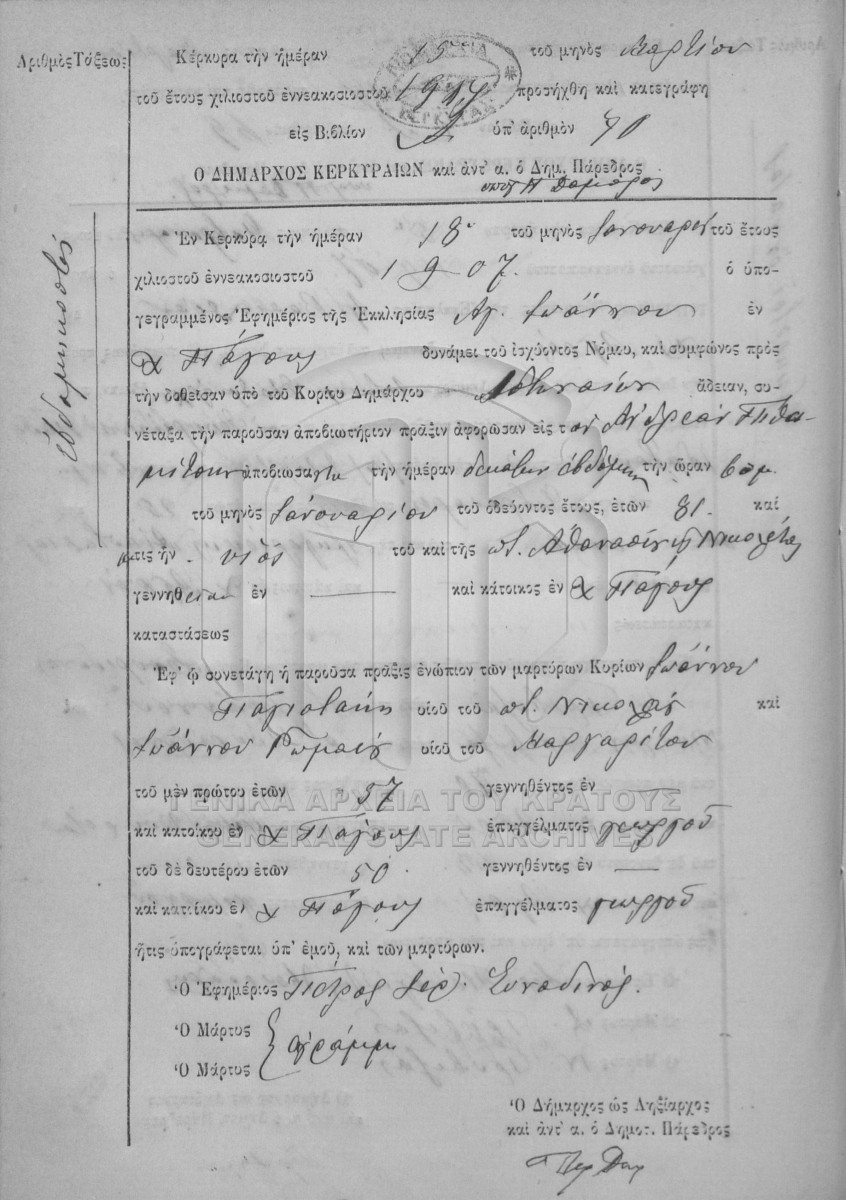 Ἀριθμὸς Τάξεως
Κέρκυρα τὴν ἡμέραν 15 τοῦ μηνὸς Μαρτίου
τοῦ ἔτους χιλιοστοῦ ἐννεακοσιοστοῦ προσήχθη καὶ κατεγράφη
εἰς Βιβλίον ὑπ' ἀριθμὸν 70
Ο ΔΗΜΑΡΧΟΣ ΚΕΡΚΥΡΑΙΩΝ καὶ ἀντ' α. ὁ Δημ. Πάρεδρος
ἑβδομηκοστός
Ἐν Κερκύρᾳ τὴν ἡμέραν 18 τοῦ μηνὸς Ιανουαρίου τοῦ ἔτους
χιλιοστοῦ ἐννεακοσιοστοῦ 1907. ὁ ὑπο-
γεγραμμένος Ἐφημέριος τῆς Ἐκκλησίας Αγ. Ιωάννου ἐν
χ Πάγους δυνάμει τοῦ ἰσχύοντος Νόμου, καὶ συμφώνως πρὸς
τὴν δοθεῖσαν ὑπὸ τοῦ Κυρίου Δημάρχου ἄδειαν, συ-
νέταξα τὴν παροῦσαν ἀποβιωτήριον πρᾶξιν ἀφορῶσαν εἰς τον Ανδρέαν
ἀποβιώσαντα τὴν ἡμέραν δεκάτην ἑβδόμην τὴν ὥραν 6 π.μ.
τοῦ μηνὸς Ιανουαρίου τοῦ ὁδεύοντος ἔτους, ἐτῶν 81. καὶ
τις ἦν υἱός τοῦ καὶ τῆς ποτ. Αθανασίου Νικολέτας
γεννηθεὶς ἐν — καὶ κάτοικος ἐν χ Πάγους
καταστάσεως
Ἐφ' ᾧ συνετάγη ἡ παροῦσα πρᾶξις ἐνώπιον τῶν μαρτύρων Κυρίων Ιωάννου
Παγιατάκη υἱοῦ τοῦ ποτ. Νικολάου καὶ
Ιωάννου Ρωμαίου υἱοῦ τοῦ Μαργαρίτου
τοῦ μὲν πρώτου ἐτῶν 57 γεννηθέντος ἐν —
ΓΕΝΙΚΑ ΑΡΧΕΙΑ ΤΟΥ ΚΡΑΤΟΥΣ
καὶ κατοίκου ἐν χ Πάγους ἐπαγγέλματος γεωργοῦ
GENERAL STATE ARCHIVES
τοῦ δὲ δευτέρου ἐτῶν 50 γεννηθέντος ἐν —
καὶ κατοίκου ἐν χ Πάγους ἐπαγγέλματος γεωργοῦ
ἥτις ὑπογράφεται ὑπ' ἐμοῦ, καὶ τῶν μαρτύρων.
Ὁ Ἐφημέριος Πέτρος Ιερ. Συναδινός.
Ὁ Μάρτυς
ἀγράμμ.
Ὁ Μάρτυς
Ὁ Δήμαρχος ὡς Ληξίαρχος
καὶ ἀντ' α. ὁ Δημοτ. Πάρεδρος